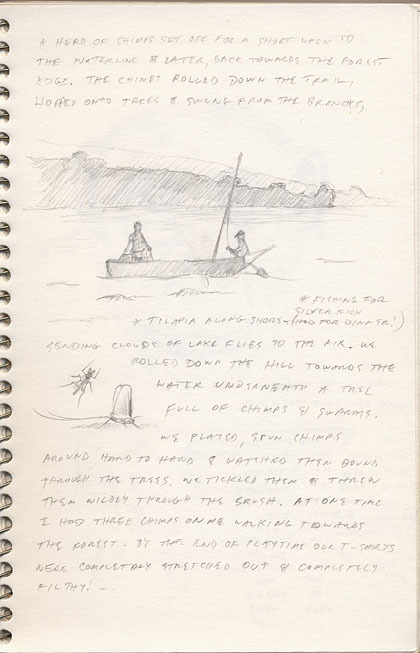 A HERD OF CHIMPS SET OFF FOR A SHORT WALK TO
THE WATERLINE & LATER, BACK TOWARDS THE FOREST
EDGE. THE CHIMPS ROLLED DOWN THE TRAIL,
HOPPED ONTO TREES & SWUNG FROM THE BRANCHES,
* FISHING FOR
SILVER FISH
* TILAPIA ALONG SHORE (HAD FOR DINNER!)
SENDING CLOUDS OF LAKE FLIES TO THE AIR. WE
ROLLED DOWN THE HILL TOWARDS THE
WATER UNDERNEATH A TREE
FULL OF CHIMPS & SWARMS.
WE PLAYED, SPUN CHIMPS
AROUND HAND TO HAND & WATCHED THEM BOUND
THROUGH THE TREES. WE TICKLED THEM & THREW
THEM WILDLY THROUGH THE BRUSH. AT ONE TIME
I HAD THREE CHIMPS ON ME WALKING TOWARDS
THE FOREST. BY THE END OF PLAYTIME OUR T-SHIRTS
WERE COMPLETELY STRETCHED OUT & COMPLETELY
FILTHY! -.